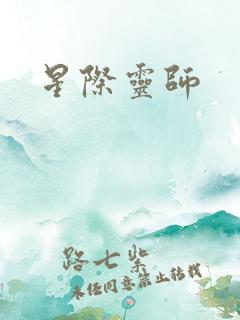 星際靈師
路七紫
未經同意禁止转载